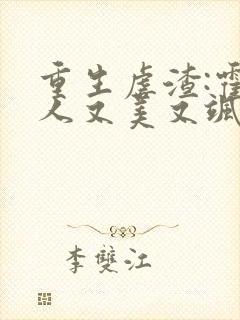 重生虐渣:霍
人又美又飒
李雙江